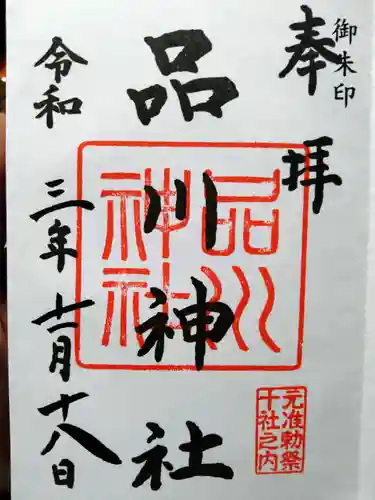 御朱印
奉拝
品川神社
品川神社
元准勅祭
十社之内
令和三年十一月十八日